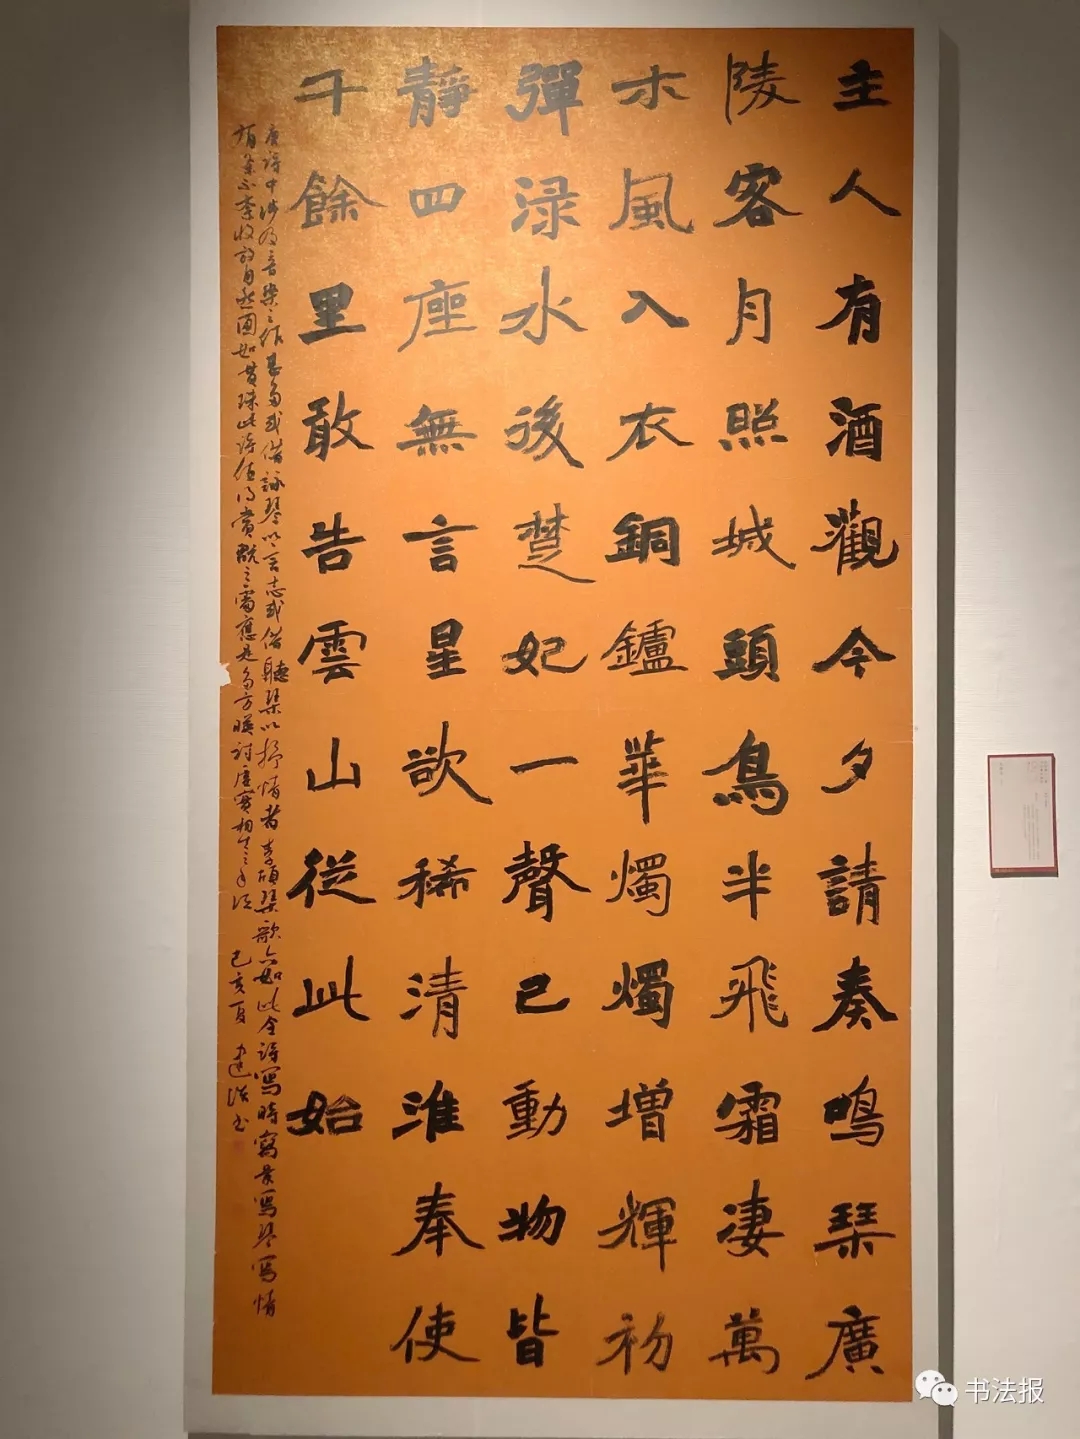 主人有酒觀今夕請奏鳴琹廣
陵客月照城頭鳥半飛霜淒萬
木風入衣銅鑪華燭燭增輝初
彈渌水後楚妃一聲已動物皆
靜四座無言星欲稀清淮奉使
千餘里敢告雲山從此始
唐詩中涉及音樂之作甚多或借詠琴以言志或借聽琹以抒情者李頎琹歌亦如此全詩寫時寫景寫琴寫情
收放自然圓如貫珠此詩值得賞翫之處應是多方映討虛實相生之手法 己亥夏 建 書
书法报